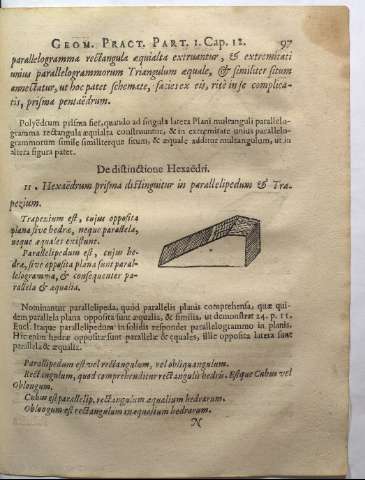 GEOM. PRACT. PART. I. Cap. 12. 97
parallelogramma rectangula æquialta extruantur, & extremitati
unius parallelogrammorum Triangulum æquale, & similiter situm
annectatur, ut hoc patet schemate, facies ex eis, ritè in se complica-
tis, prisma pentaëdrum.
Polyëdrum prisma fiet, quando ad singula latera Plani multanguli parallelo-
gramma rectangula æquialta construuntur, & in extremitate unius parallelo-
grammorum simile similiterque situm, & æquale additur multangulum, ut in
altera figura patet.
De distinctione Hexaëdri.
11. Hexaëdrum prisma distinguitur in parallelipedum & Tra-
pezium.
Trapezium est, cujus opposita
plana sive hedræ, neque parallela,
neque æquales existunt.
Parallelipedum est, cujus he-
dræ, sive opposita plana sunt paral-
lelogramma, & consequenter pa-
rallela & æqualia.
Nominantur parallelipeda, quòd parallelis planis comprehensa, quæ qui-
dem parallela plana opposita sunt æqualia, & similia, ut demonstrat 24. p. 11.
Eucl. Itaque parallelipedum in solidis respondet parallelogrammo in planis.
Hîc enim hedræ oppositæ sunt parallelæ & æquales, illîc opposita latera sunt
parallela & æqualia.
Parallipedum est vel rectangulum, vel obliquangulum.
Rectangulum, quod comprehenditur rectangulis hedris. Estque Cubus vel
Oblongum.
Cubus est parallelip. rectangulum æqualium hedrarum.
Oblongum est rectangulum inæqualium hedrarum.
N